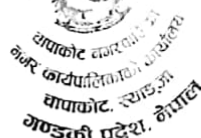 चापाकोट नगरपालिका
नगर कार्यपालिकाको कार्यालय
चापाकोट, स्याङ्जा
गण्डकी प्रदेश, नेपाल